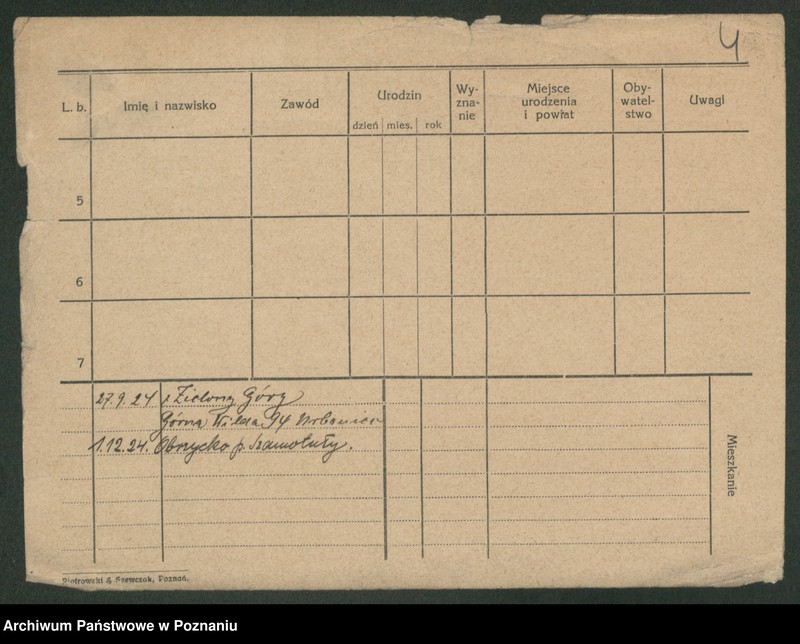 4
L. b.
Imię i nazwisko
Zawód
Urodzin
dzień mies. rok
Wy-
zna-
nie
Miejsce
urodzenia
i powiat
Oby-
watel-
stwo
Uwagi
5
6
7
27.9.24 z Zielony Góry
Górna Wilda 94 Urbaniak
1.12.24. Obrzycko p. Szamotuły.
Mieszkanie
Piotrowski & Szewczak, Poznań.
Archiwum Państwowe w Poznaniu